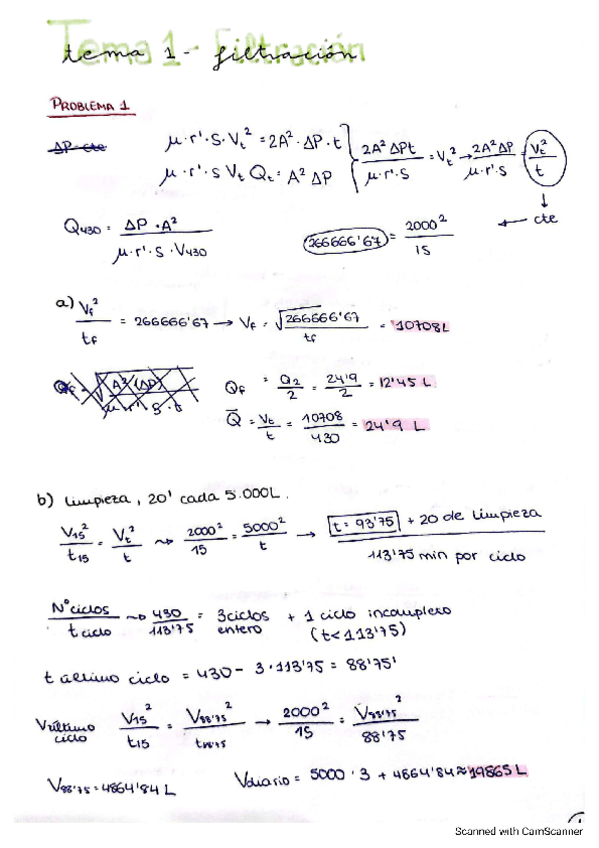 Tema 1 - Filtración
tema 1 - filtración
PROBLEMA 1
ΔP cte
μ·r'·S·Vt² = 2A²·ΔP·t
μ·r'·S Vt Qt = A² ΔP
2A² ΔPt / μ·r'·S = Vt² → 2A² ΔP / μ·r'·S = Vt² / t
↓
← cte
Q430 = ΔP·A² / μ·r'·S·V430
266666'67 = 2000² / 15
a) Vf² / tf = 266666'67 → Vf = √266666'67 / tf = 10708L
Qf = √A²(ΔP) / μ r' S·t
Qf = Q2 / 2 = 24'9 / 2 = 12'45 L
Q̄ = Vt / t = 10708 / 430 = 24'9 L
b) Limpieza, 20' cada 5.000L.
V15² / t15 = Vt² / t ⇝ 2000² / 15 = 5000² / t → t = 93'75 + 20 de limpieza
113'75 min por ciclo
Nº ciclos / t ciclo ⇝ 430 / 113'75 = 3 ciclos entero + 1 ciclo incompleto
(t < 113'75)
t último ciclo = 430 - 3·113'75 = 88'75'
Vúltimo ciclo V15² / t15 = V88'75² / t88'75 → 2000² / 15 = V88'75² / 88'75
V88'75 = 4864'84 L
Vdiario = 5000·3 + 4864'84 ≈ 19865 L
Scanned with CamScanner